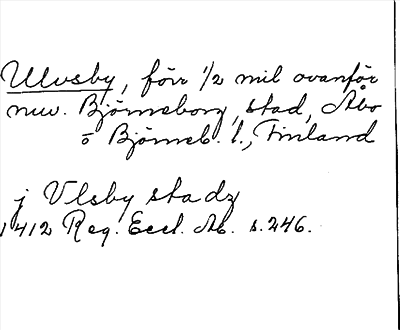 Ulvsby, förr 1/2 mil ovanför
nuv. Björneborg, stad, Åbo
o Björneb. l., Finland
j Vlsby stadz
1412 Reg. Eccl. Ab. s. 246.